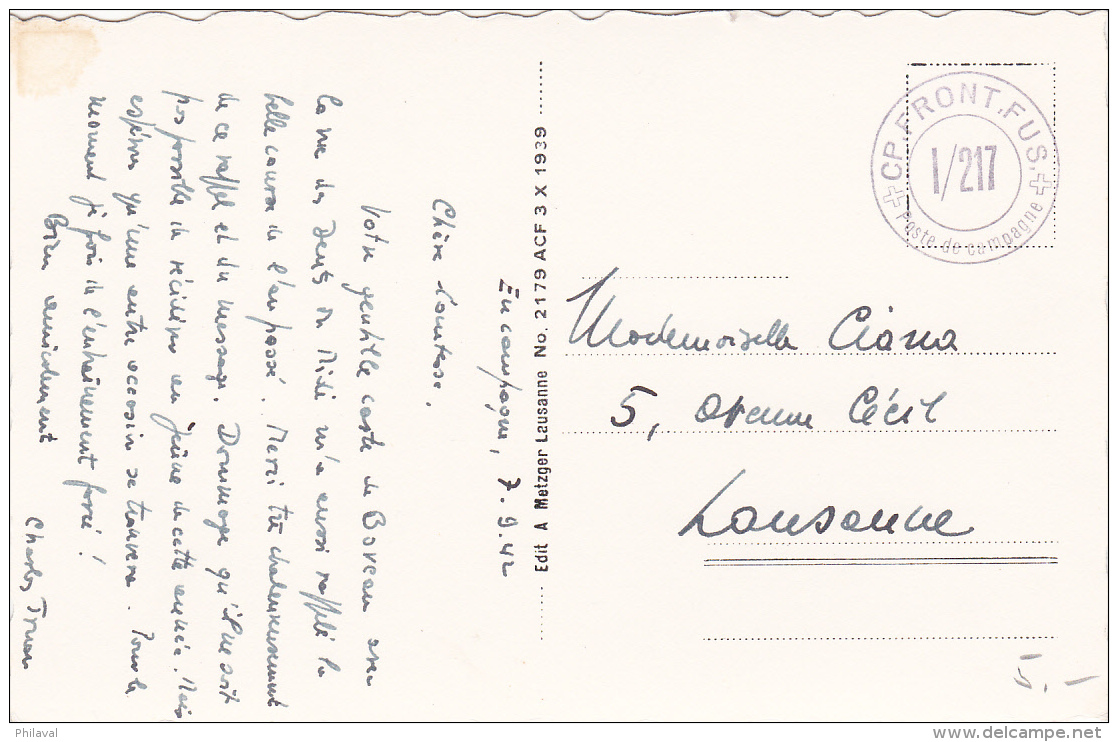 En campagne, 7.9.42
Chère
Votre gentille carte de avec
la vue des Dents du Midi m'a aussi rappelé la
belle course de l'an passé. Merci très chaleureusement
de ce rappel et du message. Dommage qu'il ne soit
pas possible de récidiver au Jeûne de cette année. Mais
espérons qu'une autre occasion se trouvera. Pour le
moment je fais de l'entraînement forcé!
Bien amicalement
Charles
Edit A Metzger Lausanne No. 2179 ACF 3 X 1939
CP. FRONT. FUS.
I/217
Poste de campagne
Mademoiselle Ciana
5, avenue Cécil
Lausanne
5.-
Philaval
www.delcampe.net